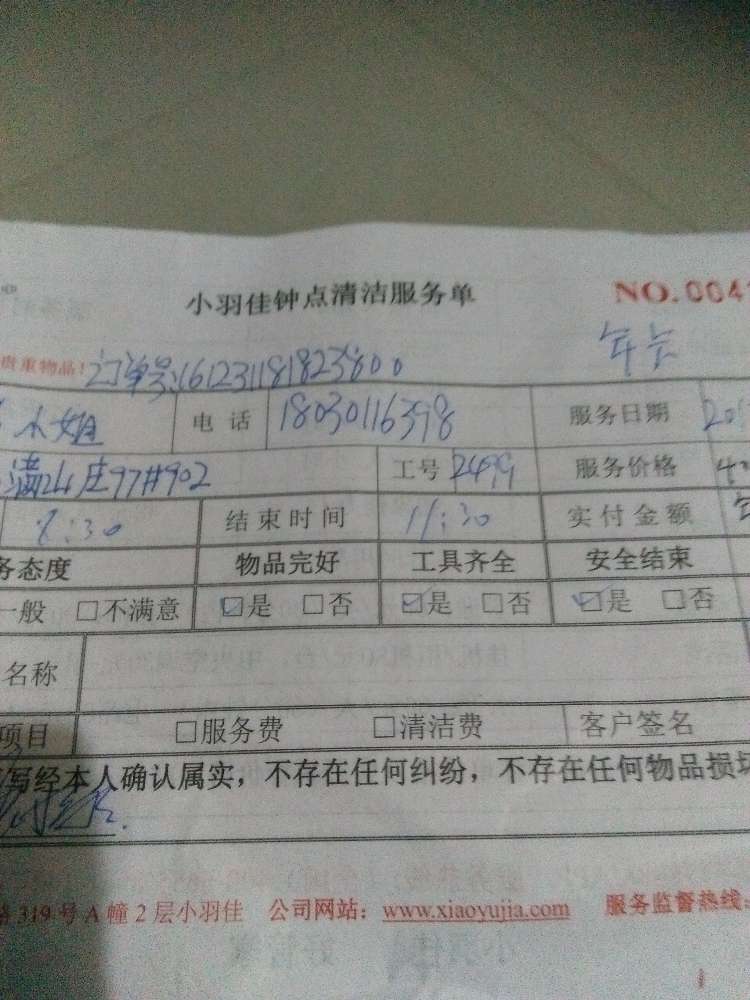 小羽佳钟点清洁服务单 NO.004
贵重物品! 订单号:161231181823800 年卡
小姐 电话 18030116398 服务日期 201
97#902 工号 2499 服务价格
8:30 结束时间 11:30 实付金额
务态度 物品完好 工具齐全 安全结束
一般 □不满意 ☑是 □否 ☑是 □否 ☑是 □否
名称
项目 □服务费 □清洁费 客户签名
写经本人确认属实，不存在任何纠纷，不存在任何物品损坏
路319号A幢2层小羽佳 公司网站：www.xiaoyujia.com 服务监督热线: